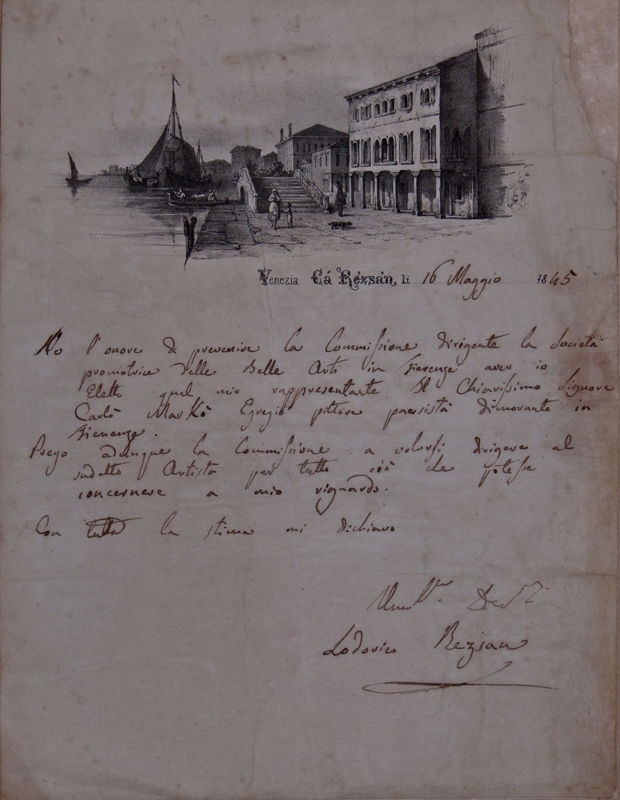 Venezia Cá Rézsán, li 16 Maggio 1845
Ho l'onore di prevenire la Commissione dirigente la Società
promotrice delle Belle Arti in Firenze aver io
Eletto qual mio rappresentante Il Chiarissimo Signore
Carlo Markò Egregio pittore paesista dimorante in
Firenze.
Prego adunque la Commissione a volersi dirigere al
sudetto Artista per tutto ciò che potesse
concernere a mio riguardo.
Con tutta la stima mi dichiaro
Lodovico Rezsan